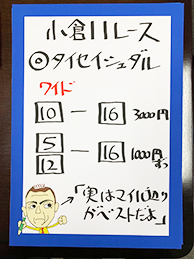 小倉11レース
◎タイセイシュダル
ワイド
10 － 16 3000円
5
12 － 16 1000円ずつ
「実はマイル辺り
がベストだよ」